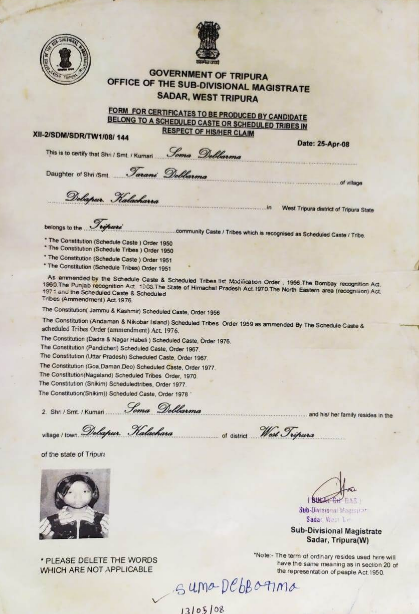 GOVERNMENT OF TRIPURA
OFFICE OF THE SUB-DIVISIONAL MAGISTRATE
SADAR, WEST TRIPURA
FORM FOR CERTIFICATES TO BE PRODUCED BY CANDIDATE
BELONG TO A SCHEDULED CASTE OR SCHEDULED TRIBES IN
RESPECT OF HIS/HER CLAIM
XII-2/SDM/SDR/TW1/08/ 144
Date: 25-Apr-08
This is to certify that Shri / Smt. / Kumari Soma Debbarma
Daughter of Shri /Smt. Tarani Debbarma of village
Debapur Kalacharra in West Tripura district of Tripura State
belongs to the Tripuri community Caste / Tribes which is recognised as Scheduled Caste / Tribe.
* The Constitution (Schedule Caste ) Order 1950
* The Constitution (Schedule Tribes ) Order 1950
* The Constitution (Schedule Caste ) Order 1951
* The Constitution (Schedule Tribes) Order 1951
As ammended by the Schedule Caste & Scheduled Tribes list Modification Order , 1956.The Bombay recognition Act.
1960.The Punjab recognition Act The State of Himachel Pradesh Act.1970.The North Eastern area (recognision) Act.
1971 and the Scheduled Caste & Scheduled
Tribes (Ammendment) Act.1976.
The Constitution( Jammu & Kashmir) Scheduled Caste, Order 1956
The Constitution (Andaman & Nikobar Island) Scheduled Tribes Order 1959 as ammended By The Schedule Caste &
scheduled Tribes Order (ammendment) Act. 1976.
The Constitution (Dadra & Nagar Habeli ) Scheduled Caste, Order 1976.
The Constitution (Pandicheri) Scheduled Caste, Order 1967.
The Constitution (Uttar Pradesh) Scheduled Caste, Order 1967.
The Constitution (Goa,Daman,Deo) Scheduled Caste, Order 1977.
The Constitution(Nagaland) Scheduled Tribes Order, 1970.
The Constitution (Shikim) Scheduledtribes, Order 1977.
The Constitution(Shikim)) Scheduled Caste, Order 1978
2. Shri / Smt. / Kumari Soma Debbarma and his/ her family resides in the
village / town Debapur Kalachara of district West Tripura
of the state of Tripura
Sub-Divisional Magistrate
Sadar, West
Sub-Divisional Magistrate
Sadar, Tripura(W)
* PLEASE DELETE THE WORDS
WHICH ARE NOT APPLICABLE
*Note:- The term of ordinary resides used here will
have the same meaning as in section 20 of
the representation of people Act 1950.
Suma Debbarma
13/05/08